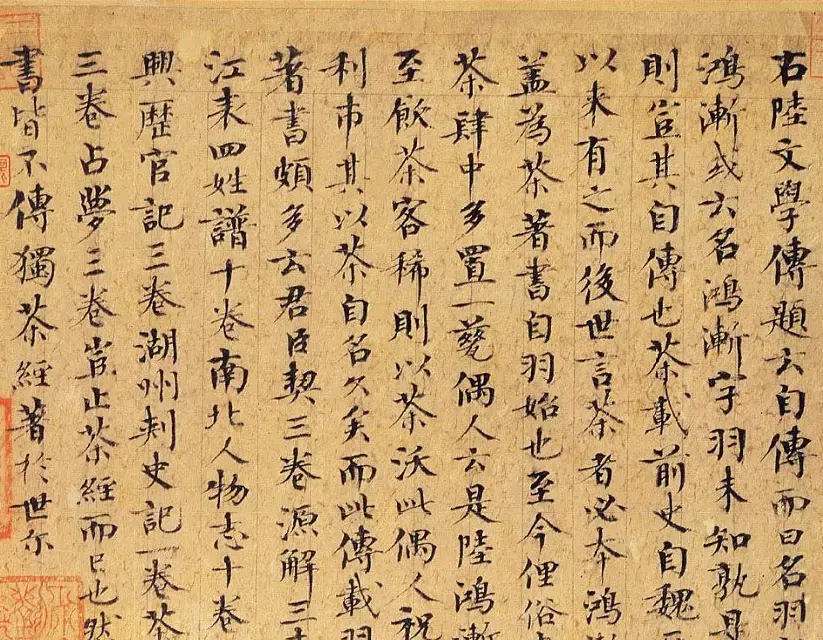 右陸文學傳題云自傳而曰名羽
鴻漸或云名鴻漸字羽未知孰是
則豈其自傳也茶載前史自魏
以来有之而後世言茶者必本鴻
盖為茶著書自羽始也至今俚俗
茶肆中多置一甆偶人云是陸鴻漸
至飲茶客稀則以茶沃此偶人祝
利市其以茶自名久矣而此傳載
著書頗多云君臣契三卷源解三
江表四姓譜十卷南北人物志十卷
興歷官記三卷湖州刺史記一卷茶
三卷占夢三卷豈止茶經而已也然
書皆不傳獨茶經著於世尔